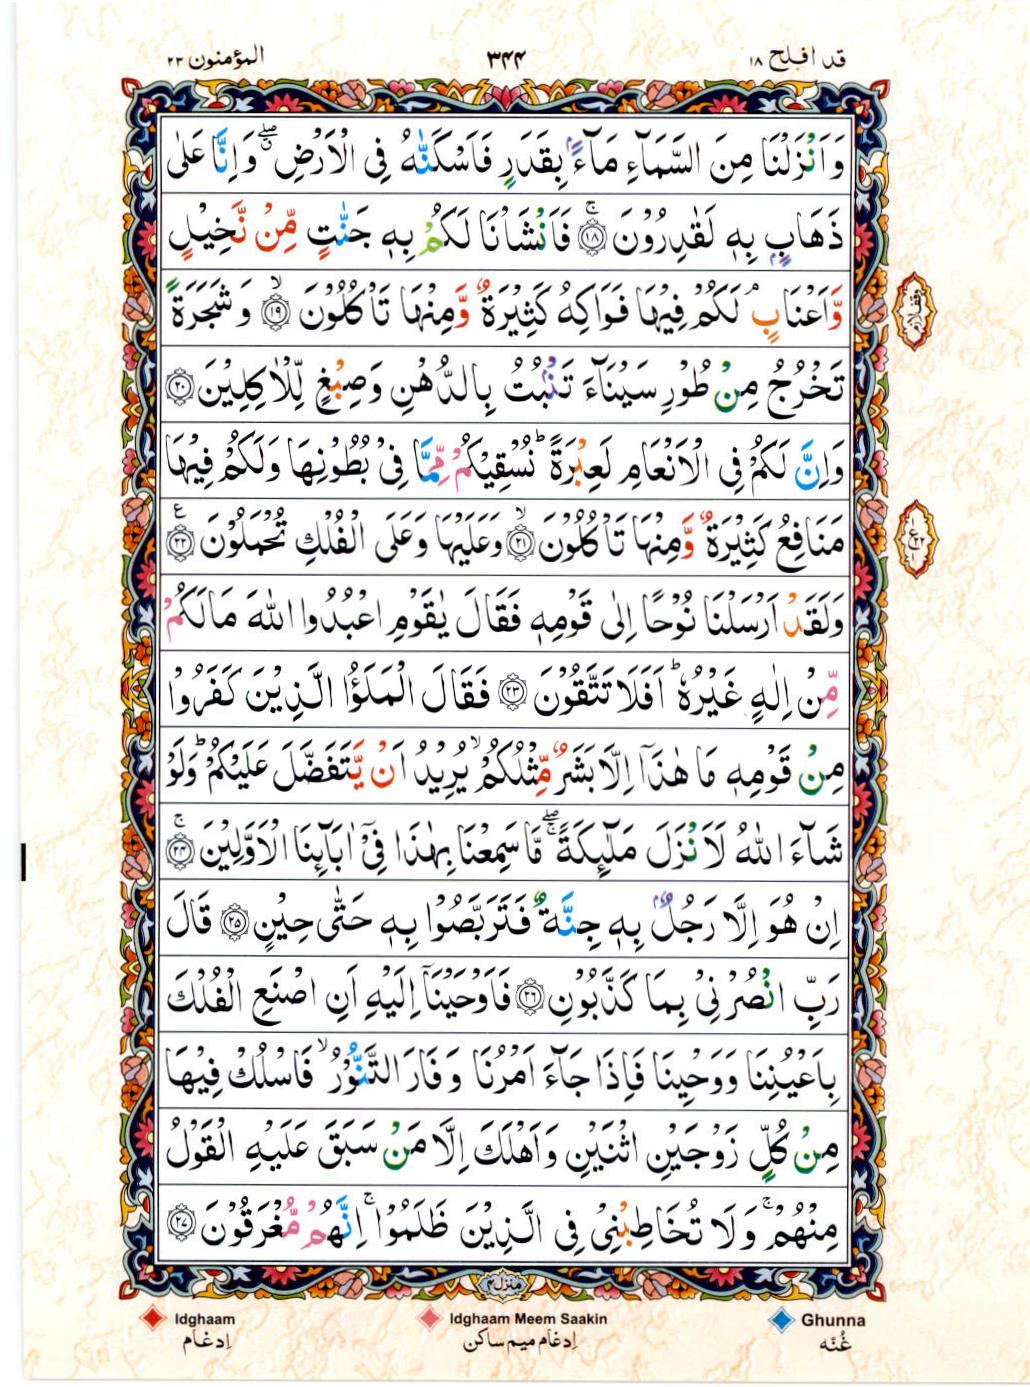 قد افلح ١٨ ٣٤٤ المؤمنون ٢٣
وَاَنْزَلْنَا مِنَ السَّمَآءِ مَآءًۢ بِقَدَرٍ فَاَسْكَنّٰهُ فِی الْاَرْضِ ۖۗ وَاِنَّا عَلٰی
ذَهَابٍۭ بِهٖ لَقٰدِرُوْنَ ۚ﴿١٨﴾ فَاَنْشَاْنَا لَكُمْ بِهٖ جَنّٰتٍ مِّنْ نَّخِیْلٍ
وَّاَعْنَابٍ ۘ لَكُمْ فِیْهَا فَوَاكِهُ كَثِیْرَةٌ وَّمِنْهَا تَاْكُلُوْنَ ۙ﴿١٩﴾ وَشَجَرَةً
تَخْرُجُ مِنْ طُوْرِ سَیْنَآءَ تَنْۢبُتُ بِالدُّهْنِ وَصِبْغٍ لِّلْاٰكِلِیْنَ ﴿٢٠﴾
وَاِنَّ لَكُمْ فِی الْاَنْعَامِ لَعِبْرَةً ؕ نُسْقِیْكُمْ مِّمَّا فِیْ بُطُوْنِهَا وَلَكُمْ فِیْهَا
مَنَافِعُ كَثِیْرَةٌ وَّمِنْهَا تَاْكُلُوْنَ ۙ﴿٢١﴾ وَعَلَیْهَا وَعَلَی الْفُلْكِ تُحْمَلُوْنَ ﴿٢٢﴾ ع
وَلَقَدْ اَرْسَلْنَا نُوْحًا اِلٰی قَوْمِهٖ فَقَالَ یٰقَوْمِ اعْبُدُوا اللّٰهَ مَا لَكُمْ
مِّنْ اِلٰهٍ غَیْرُهٗ ؕ اَفَلَا تَتَّقُوْنَ ﴿٢٣﴾ فَقَالَ الْمَلَؤُا الَّذِیْنَ كَفَرُوْا
مِنْ قَوْمِهٖ مَا هٰذَاۤ اِلَّا بَشَرٌ مِّثْلُكُمْ ۙ یُرِیْدُ اَنْ یَّتَفَضَّلَ عَلَیْكُمْ ؕ وَلَوْ
شَآءَ اللّٰهُ لَاَنْزَلَ مَلٰٓىِٕكَةً ۖۚ مَّا سَمِعْنَا بِهٰذَا فِیْۤ اٰبَآىِٕنَا الْاَوَّلِیْنَ ۚ﴿٢٤﴾
اِنْ هُوَ اِلَّا رَجُلٌۢ بِهٖ جِنَّةٌ فَتَرَبَّصُوْا بِهٖ حَتّٰی حِیْنٍ ﴿٢٥﴾ قَالَ
رَبِّ انْصُرْنِیْ بِمَا كَذَّبُوْنِ ﴿٢٦﴾ فَاَوْحَیْنَاۤ اِلَیْهِ اَنِ اصْنَعِ الْفُلْكَ
بِاَعْیُنِنَا وَوَحْیِنَا فَاِذَا جَآءَ اَمْرُنَا وَفَارَ التَّنُّوْرُ ۙ فَاسْلُكْ فِیْهَا
مِنْ كُلٍّ زَوْجَیْنِ اثْنَیْنِ وَاَهْلَكَ اِلَّا مَنْ سَبَقَ عَلَیْهِ الْقَوْلُ
مِنْهُمْ ۚ وَلَا تُخَاطِبْنِیْ فِی الَّذِیْنَ ظَلَمُوْا ۚ اِنَّهُمْ مُّغْرَقُوْنَ ﴿٢٧﴾
منزل ٤
Idghaam Idghaam Meem Saakin Ghunna
اِدغام اِدغام میم ساکن غُنّه